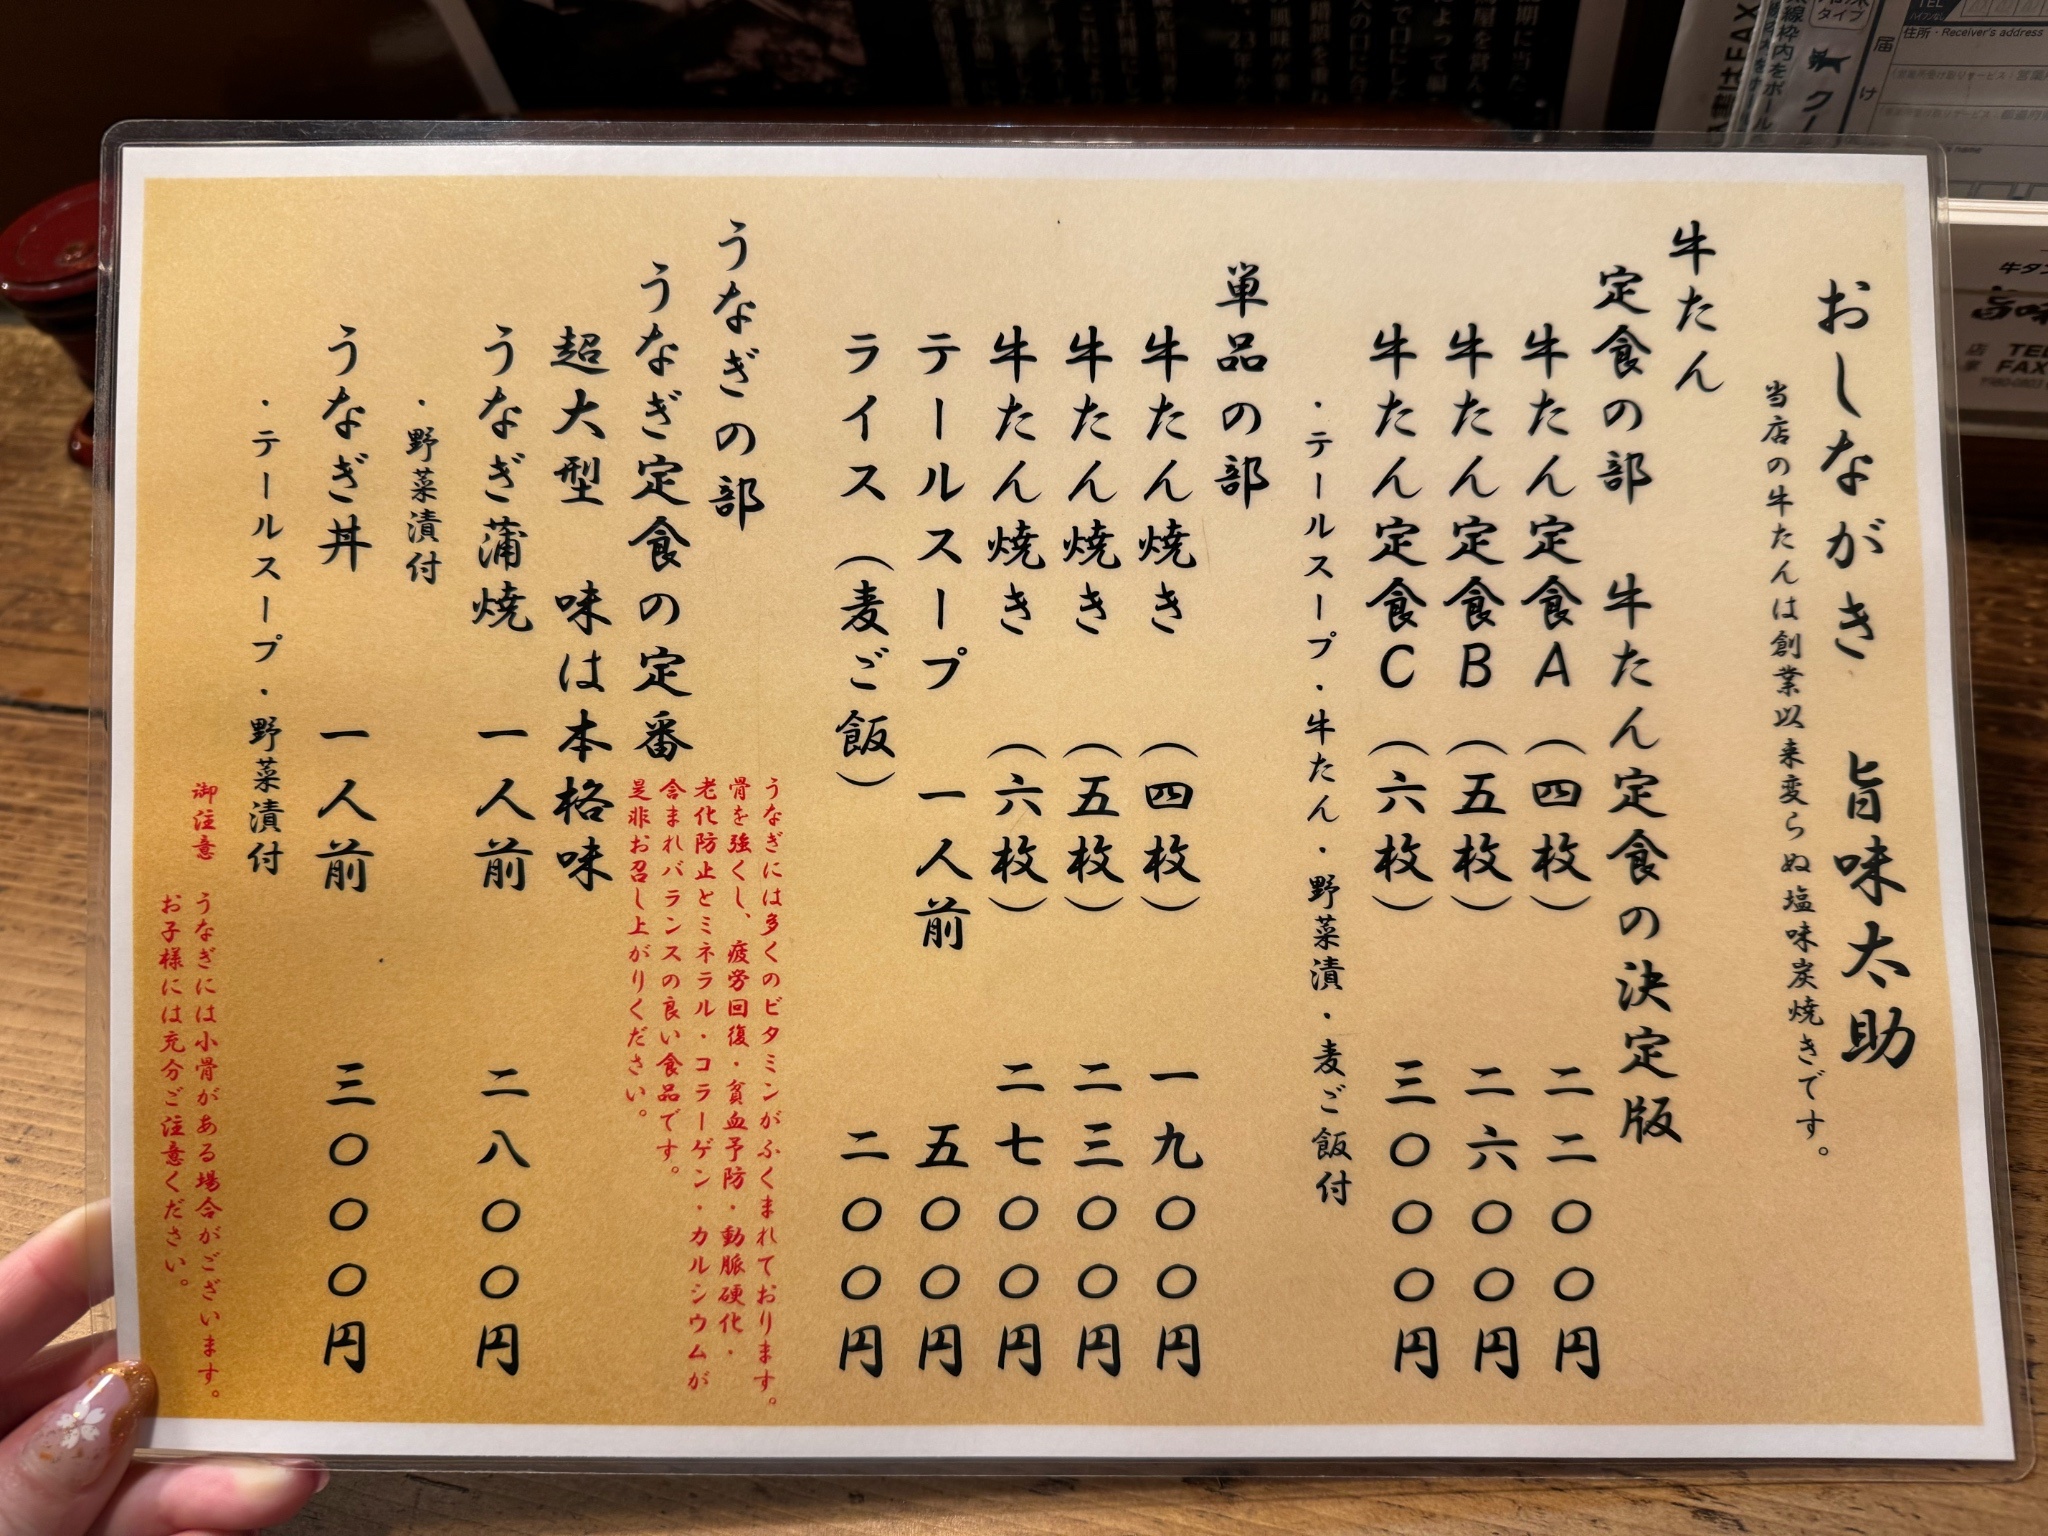 おしながき 旨味太助
当店の牛たんは創業以来変らぬ塩味炭焼きです。
牛たん
定食の部 牛たん定食の決定版
牛たん定食A（四枚） 二二〇〇円
牛たん定食B（五枚） 二六〇〇円
牛たん定食C（六枚） 三〇〇〇円
・テールスープ・牛たん・野菜漬・麦ご飯付
単品の部
牛たん焼き（四枚） 一九〇〇円
牛たん焼き（五枚） 二三〇〇円
牛たん焼き（六枚） 二七〇〇円
テールスープ 一人前 五〇〇円
ライス（麦ご飯） 二〇〇円
うなぎの部
うなぎ定食の定番
超大型 味は本格味
うなぎには多くのビタミンがふくまれております。
骨を強くし、疲労回復・貧血予防・動脈硬化・
老化防止とミネラル・コラーゲン・カルシウムが
含まれバランスの良い食品です。
是非お召し上がりください。
うなぎ蒲焼 一人前 二八〇〇円
・野菜漬付
うなぎ丼 一人前 三〇〇〇円
・テールスープ・野菜漬付
御注意 うなぎには小骨がある場合がございます。
お子様には充分ご注意ください。
タイプ
届け
住所・Receiver's address
TEL
FAX